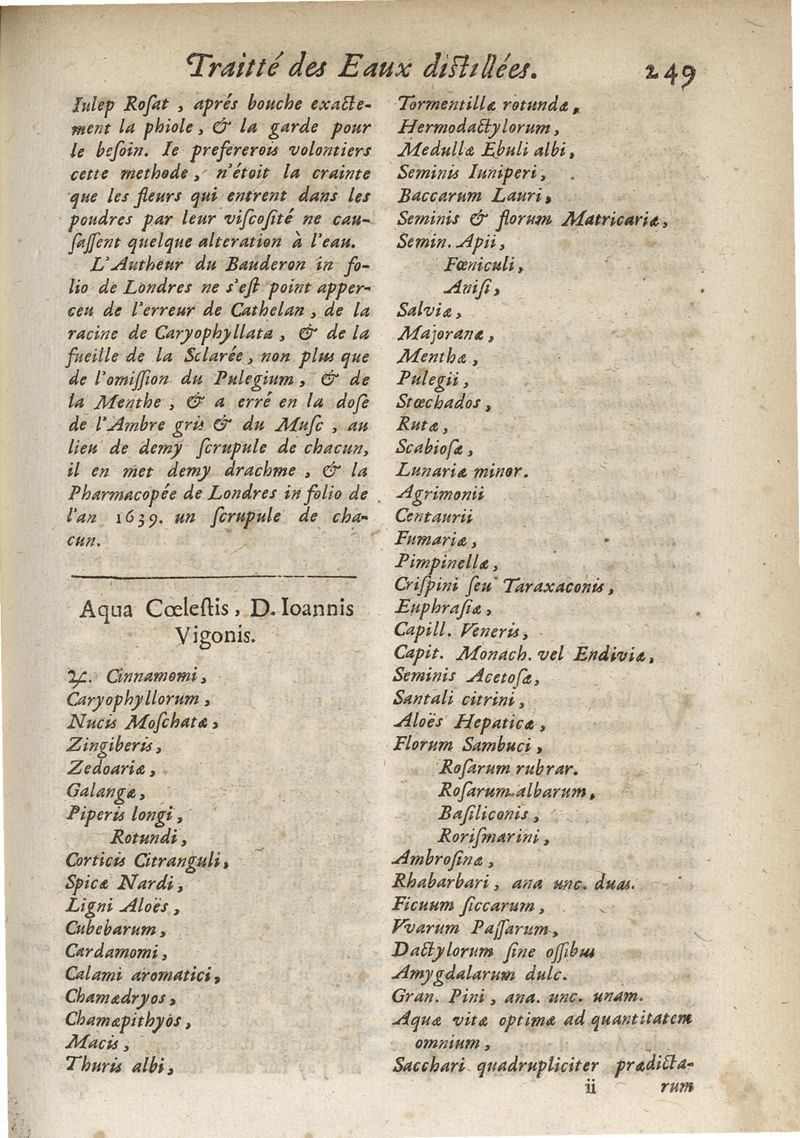 Traitté des Eaux distillées. 249
Iulep Rosat , aprés bouche exacte-
ment la phiole , & la garde pour
le besoin. Ie prefererois volontiers
cette methode , n'étoit la crainte
que les fleurs qui entrent dans les
poudres par leur viscosité ne cau-
sassent quelque alteration à l'eau.
L'Autheur du Bauderon in fo-
lio de Londres ne s'est point apper-
ceu de l'erreur de Cathelan , de la
racine de Caryophyllata , & de la
fueille de la Sclarée , non plus que
de l'omission du Pulegium , & de
la Menthe , & a erré en la dose
de l'Ambre gris & du Musc , au
lieu de demy scrupule de chacun,
il en met demy drachme , & la
Pharmacopée de Londres in folio de
l'an 1639. un scrupule de cha-
cun.
Aqua Cœlestis , D. Ioannis
Vigonis.
♃. Cinnamomi ,
Caryophyllorum ,
Nucis Moschatæ ,
Zingiberis ,
Zedoariæ ,
Galangæ ,
Piperis longi ,
Rotundi ,
Corticis Citranguli ,
Spicæ Nardi ,
Ligni Aloës ,
Cubebarum ,
Cardamomi ,
Calami aromatici ,
Chamædryos ,
Chamæpithyos ,
Macis ,
Thuris albi ,
Tormentillæ rotundæ ,
Hermodactylorum ,
Medullæ Ebuli albi ,
Seminis Iuniperi ,
Baccarum Lauri ,
Seminis & florum Matricariæ ,
Semin. Apii ,
Fœniculi ,
Anisi ,
Salviæ ,
Majoranæ ,
Menthæ ,
Pulegii ,
Stœchados ,
Rutæ ,
Scabiosæ ,
Lunariæ minor.
Agrimonii
Centaurii
Fumariæ ,
Pimpinellæ ,
Crispini seu Taraxaconis ,
Euphrasiæ ,
Capill. Veneris ,
Capit. Monach. vel Endiviæ ,
Seminis Acetosæ ,
Santali citrini ,
Aloës Hepaticæ ,
Florum Sambuci ,
Rosarum rubrar.
Rosarum albarum ,
Basiliconis ,
Rorismarini ,
Ambrosinæ ,
Rhabarbari , ana unc. duas.
Ficuum siccarum ,
Vvarum Passarum ,
Dactylorum sine ossibus
Amygdalarum dulc.
Gran. Pini , ana. unc. unam.
Aquæ vitæ optimæ ad quantitatem
omnium ,
Sacchari quadrupliciter prædicta-
ii rum